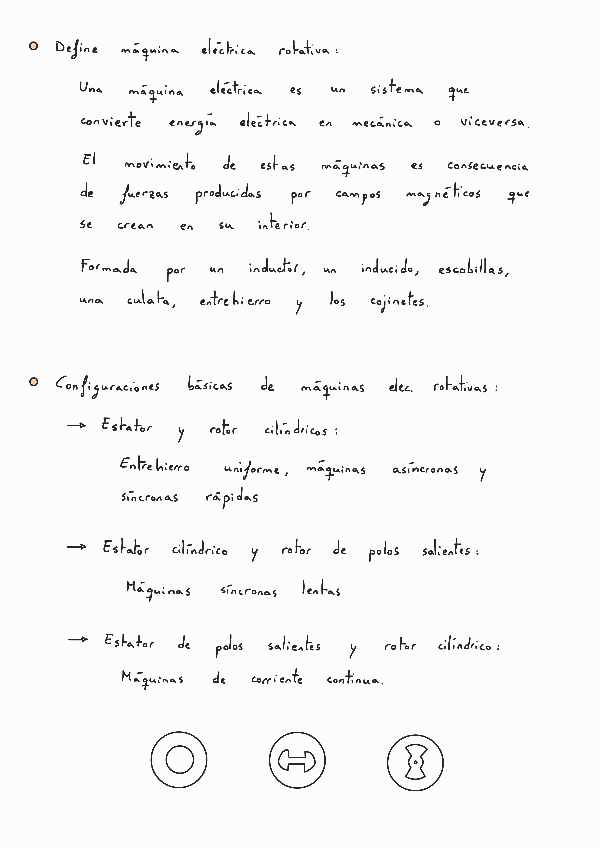 Define máquina eléctrica rotativa:
Una máquina eléctrica es un sistema que
convierte energía eléctrica en mecánica o viceversa.
El movimiento de estas máquinas es consecuencia
de fuerzas producidas por campos magnéticos que
se crean en su interior.
Formada por un inductor, un inducido, escobillas,
una culata, entrehierro y los cojinetes.
Configuraciones básicas de máquinas elec. rotativas:
→ Estator y rotor cilíndricos:
Entrehierro uniforme, máquinas asíncronas y
síncronas rápidas
→ Estator cilíndrico y rotor de polos salientes:
Máquinas síncronas lentas
→ Estator de polos salientes y rotor cilíndrico:
Máquinas de corriente continua.